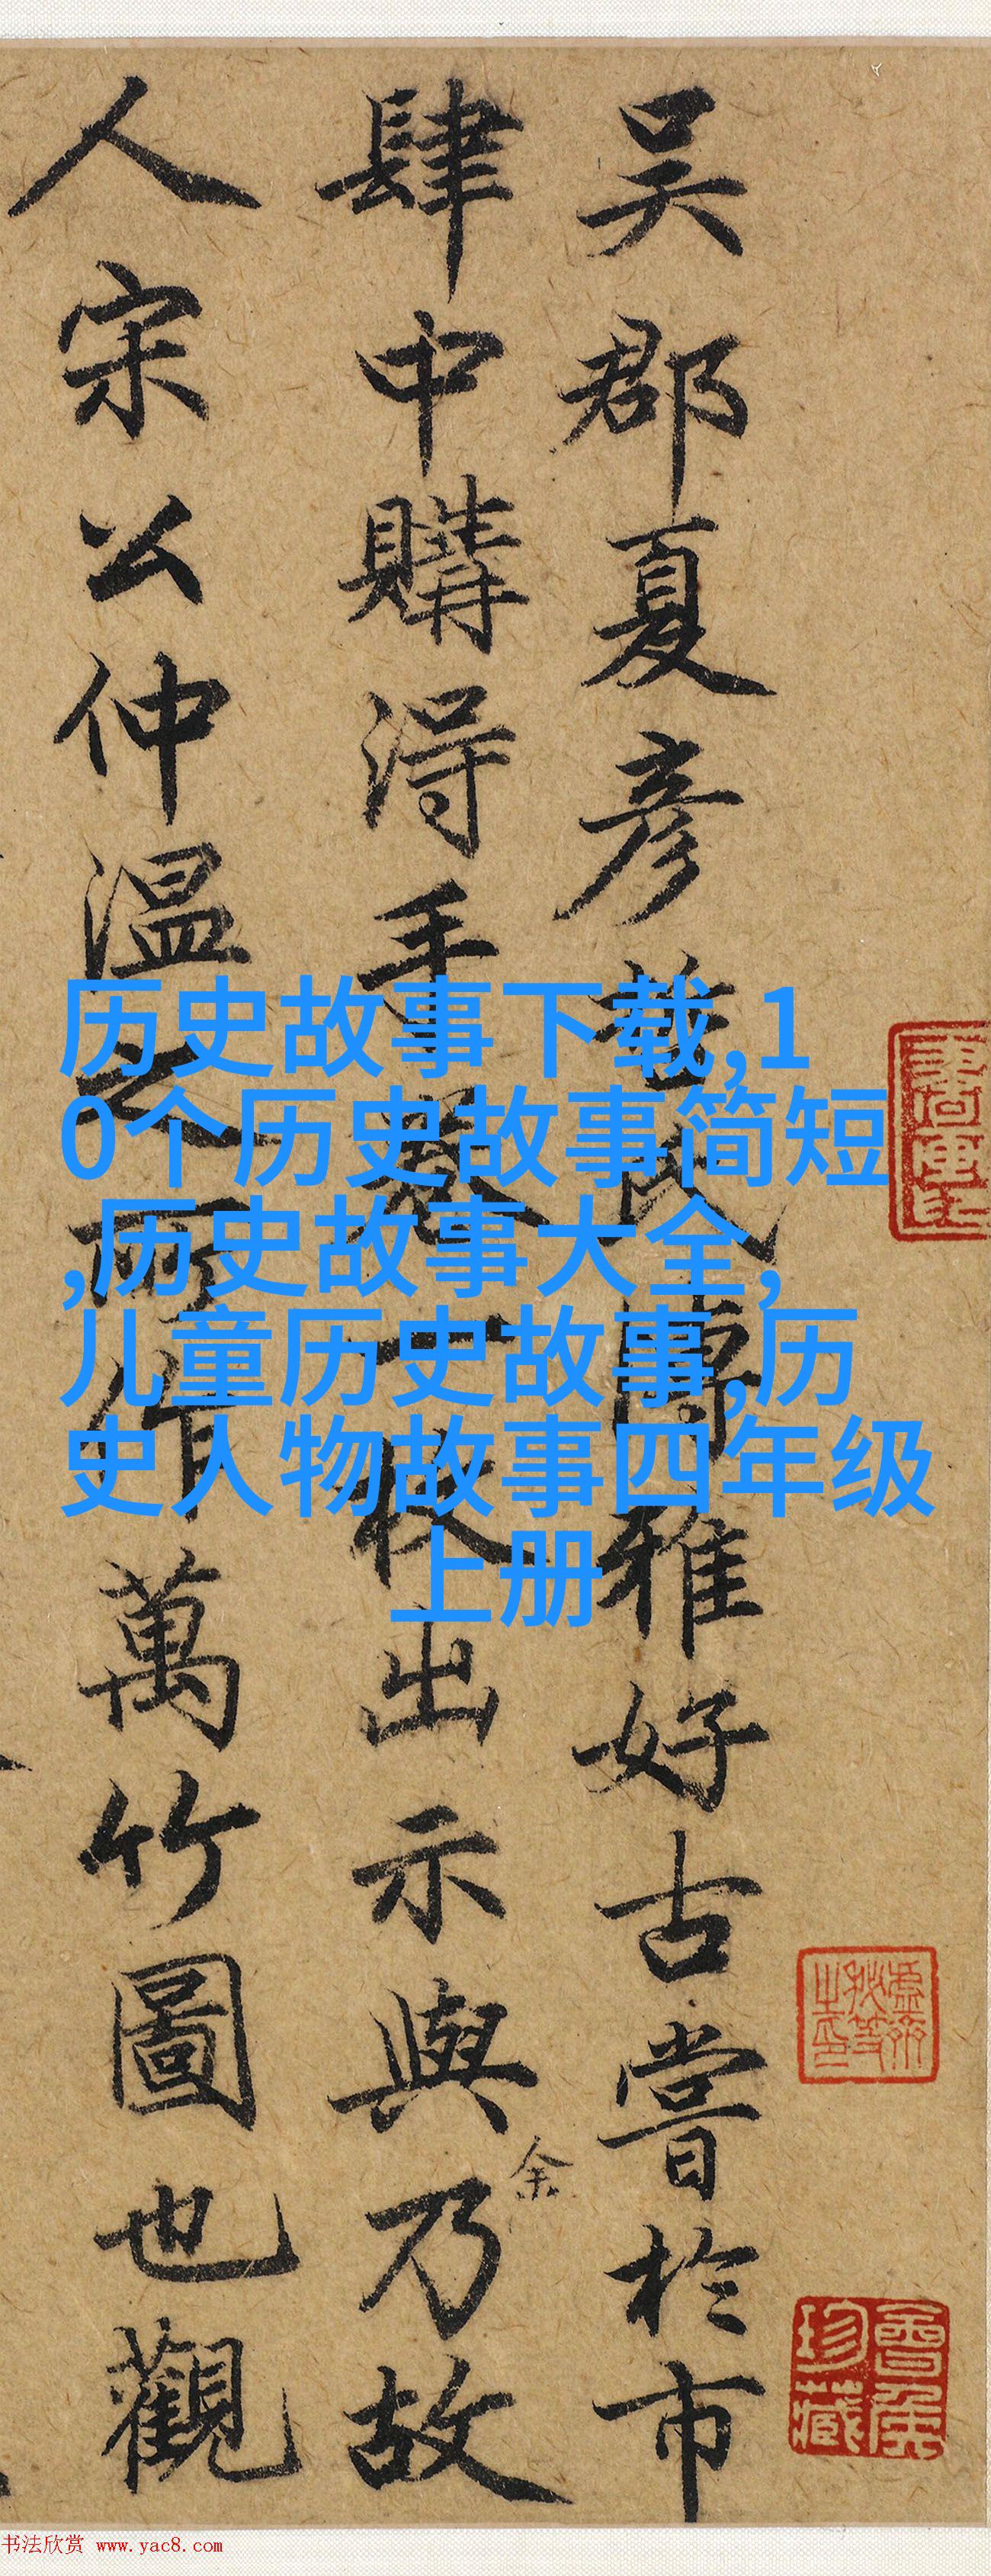 吴郡夏彦
雅好古嘗於市
肆中購得手
出示與乃故
余
人宋公仲温
萬竹圖也觀
历史故事下载,1
0个历史故事简短
,历史故事大全,
儿童历史故事,历
史人物故事四年级
上册
珍藏
书法欣赏 www.yac8.com